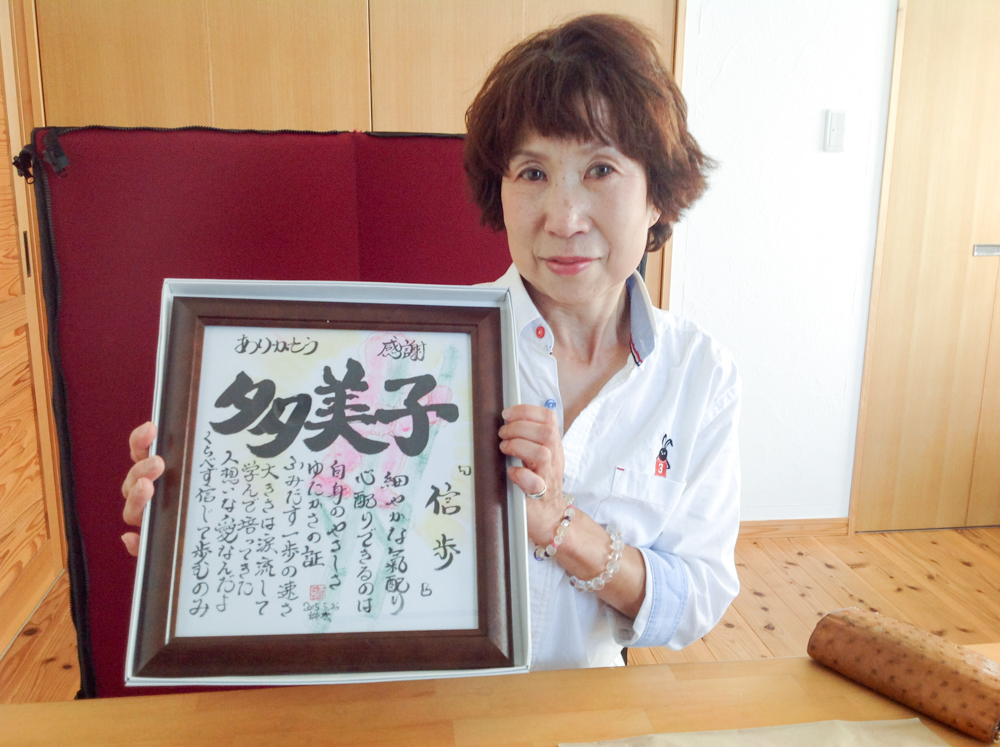 ありがとう
感謝
多美子
「信歩」
細やかな氣配り
心配りできるのは
自身のやさしさ
ゆたかさの証
ふみだす一歩の速さ
大きさは涙流して
学んで培ってきた
人想いな愛なんだよ
くらべず信じて歩むのみ
2015.5.26
3